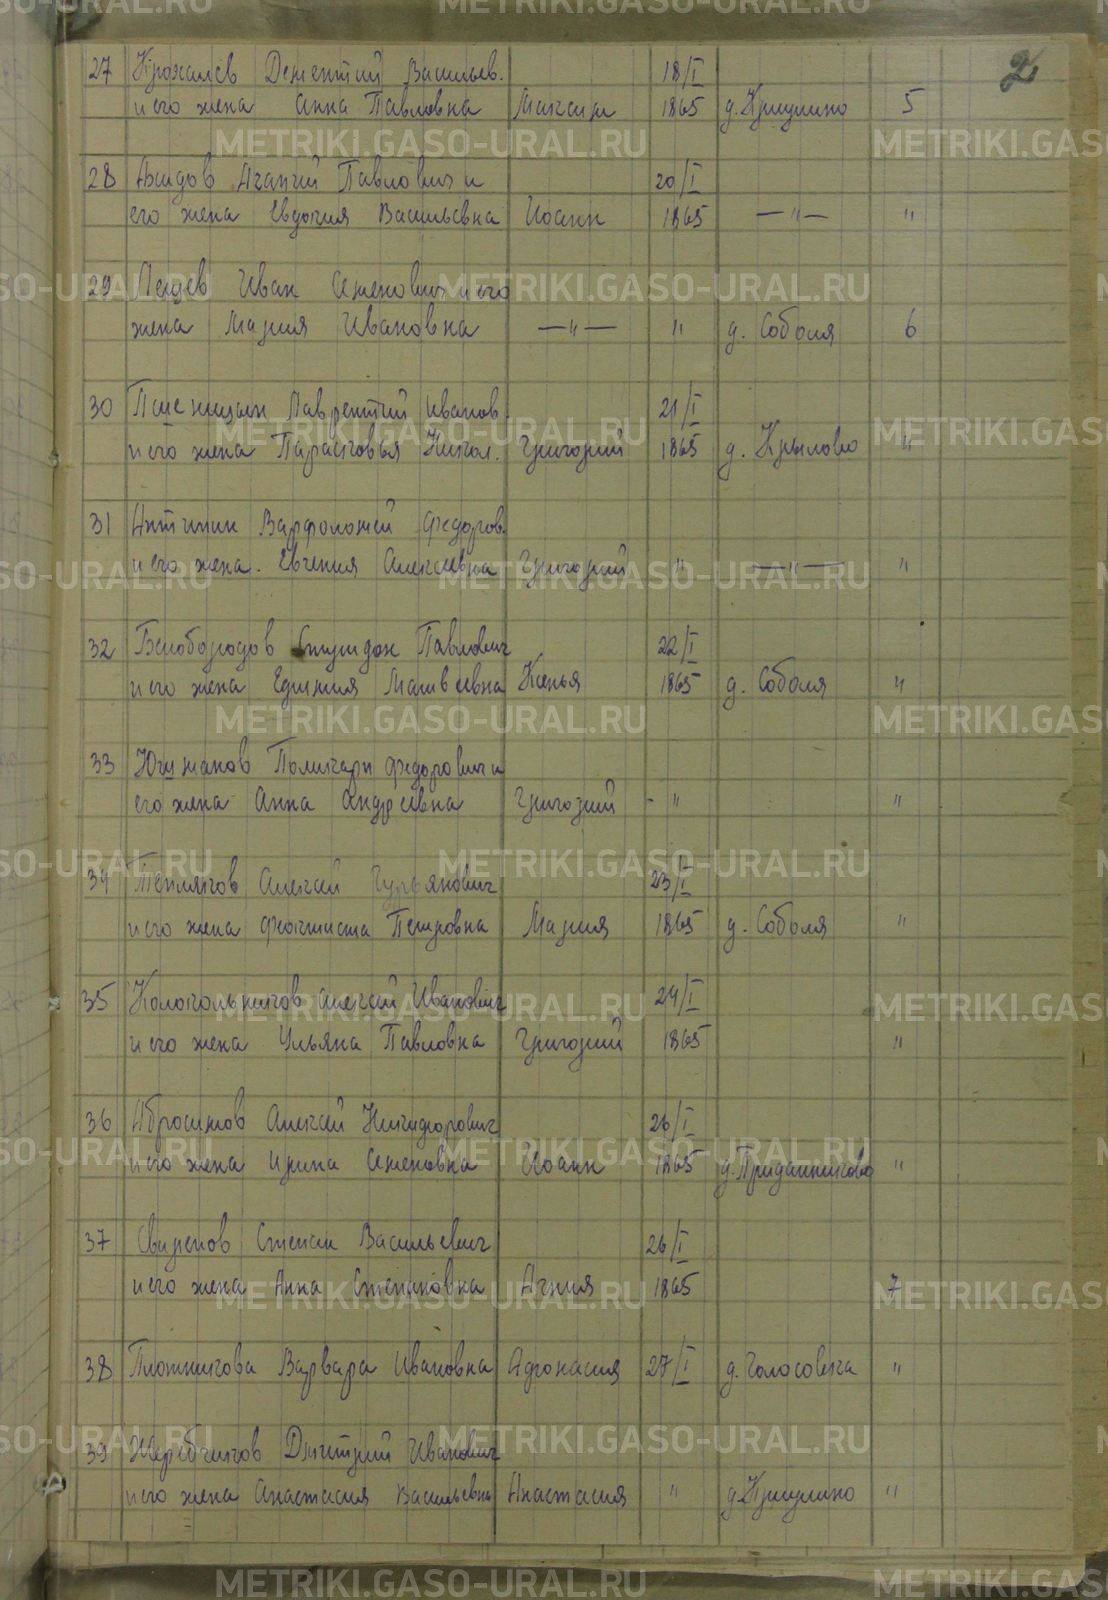 2
27 Крохалев Дементий Васильев. 18/I
и его жена Анна Павловна Максим 1865 д. Криулино 5
28 Агапий Павлович и 20/I
его жена Евдокия Васильевна Иоанн 1865 —"— "
29 Пенцев Иван Семенович и его
жена Мария Ивановна —"— " д. Соболя 6
30 Пшеницын Лаврентий Иванов. 21/I
и его жена Парасковья Никол. Григорий 1865 д. Крылово "
31 Антипин Варфоломей Федоров.
и его жена. Евгения Алексеевна Григорий " —"— "
32 Белобородов Спиридон Павлович 22/I
и его жена Матвеевна Ксенья 1865 д. Соболя "
33 Югжанов Поликарп Федорович и
его жена Анна Андреевна Григорий - " "
34 Тепляков Алексей Гурьянович 23/I
и его жена Феоктиста Петровна Мария 1865 д. Соболя "
35 Колокольников Алексей Иванович 24/I
и его жена Ульяна Павловна Григорий 1865 "
36 Абросимов Алексей Никифорович 26/I
и его жена Ирина Семеновна Иоанн 1865 д. Приданниково "
37 Свирепов Степан Васильевич 26/I
и его жена Анна Степановна Агния 1865 7
38 Плотникова Варвара Ивановна Афонасия 27/I д. Голосовика "
39 Жеребчиков Дмитрий Иванович
и его жена Анастасия Васильевна Анастасия " д. Криулино "
METRIKI.GASO-URAL.RU